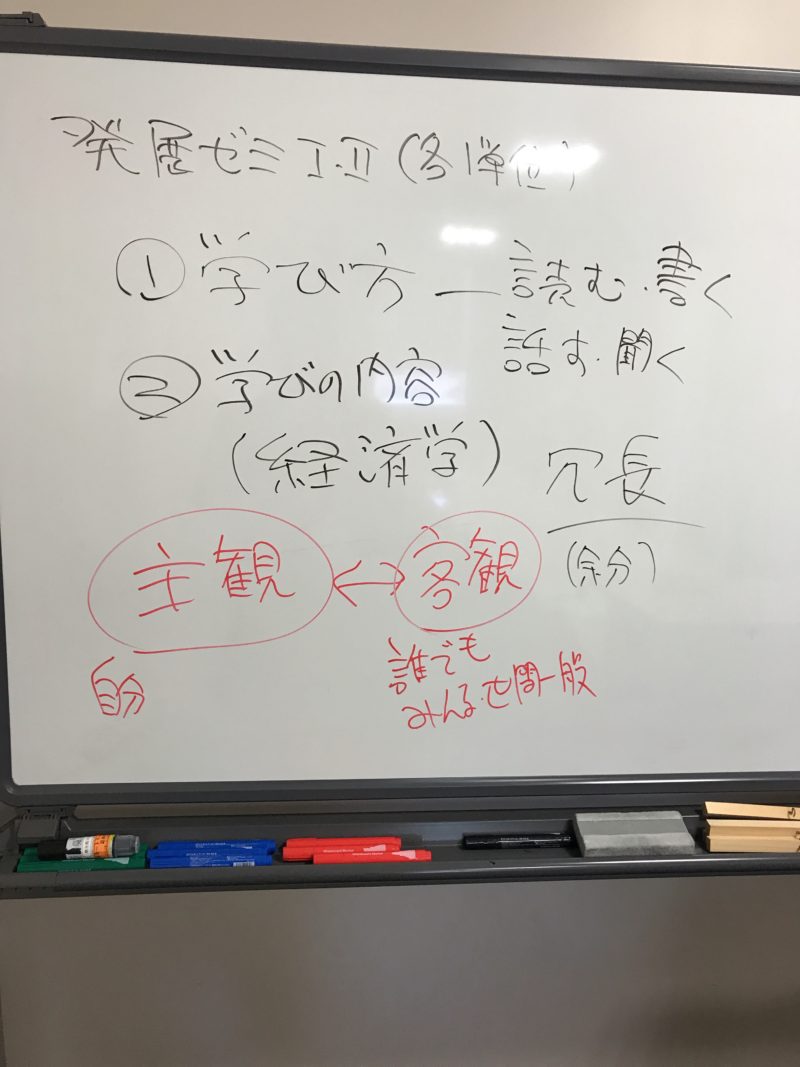 発展ゼミ I・II (各1単位)
① 学び方 ― 読む・書く
話す・聞く
② 学びの内容
(経済学)
冗長
(余分)
主観 ↔ 客観
自分
誰でも
みんな・世間一般